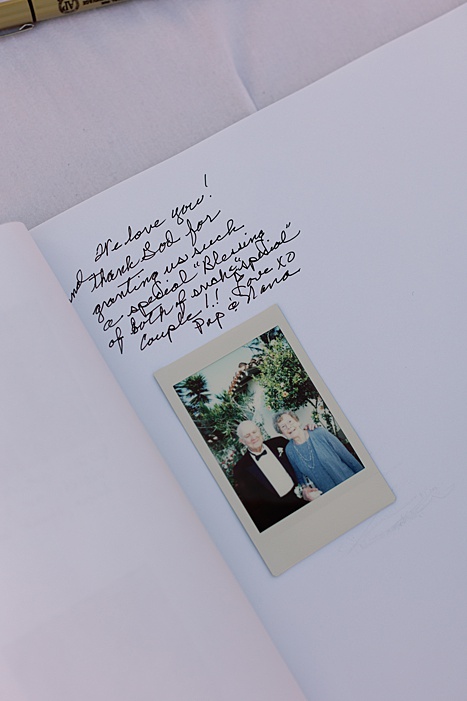 We love you!
and thank God for
granting us such
a special "Blessing
of both of such "special"
couple!! Love XO
Pop & Nana